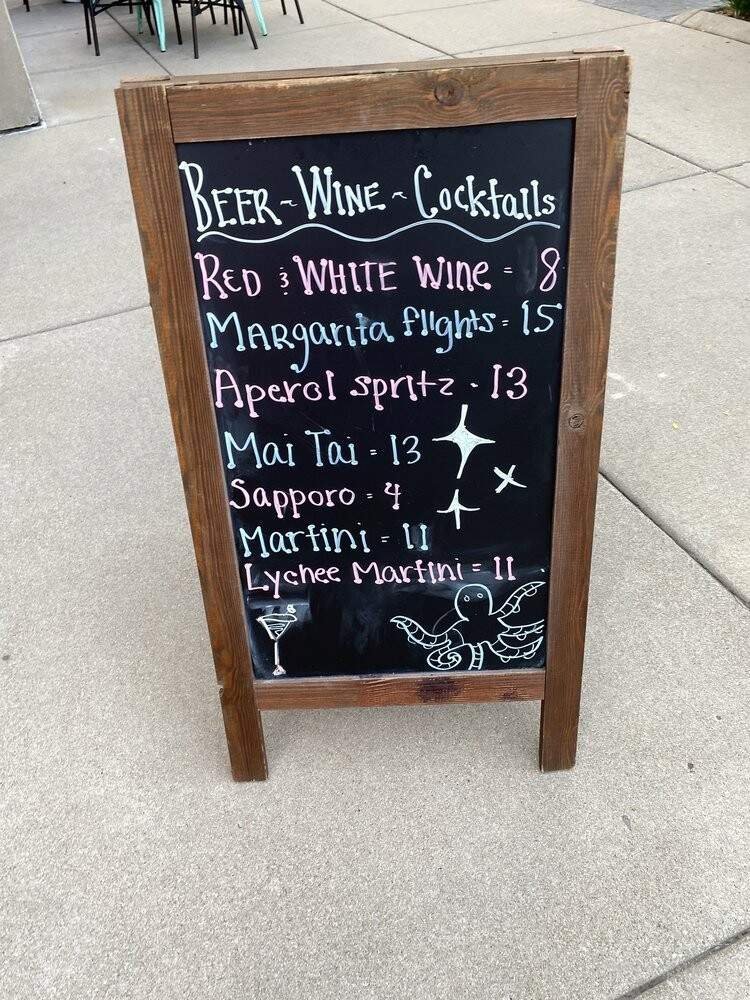 BEER ~ WINE ~ Cocktails
RED & WHITE WINE = 8
MARgarita flights = 15
Aperol spritz - 13
Mai Tai = 13
Sapporo = 4
Martini = 11
Lychee Martini = 11